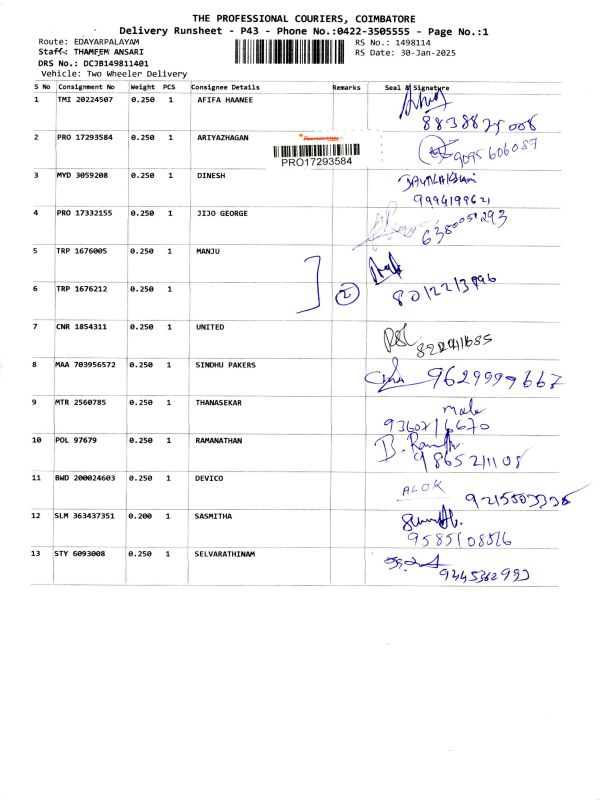 THE PROFESSIONAL COURIERS, COIMBATORE
Delivery Runsheet - P43 - Phone No.:0422-3505555 - Page No.:1
Route: EDAYARPALAYAM RS No.: 1498114
Staff : THAMEEM ANSARI RS Date: 30-Jan-2025
DRS No.: DCJB149811401
Vehicle: Two Wheeler Delivery
S No Consignment No Weight PCS Consignee Details Remarks Seal & Signature
1 TMI 20224507 0.250 1 AFIFA HAANEE
2 PRO 17293584 0.250 1 ARIYAZHAGAN
PRO17293584
9095606089
3 MYD 3059208 0.250 1 DINESH
9994199621
4 PRO 17332155 0.250 1 JIJO GEORGE
5 TRP 1676005 0.250 1 MANJU
6 TRP 1676212 0.250 1 2
7 CNR 1854311 0.250 1 UNITED
8 MAA 703956572 0.250 1 SINDHU PAKERS
9629999667
9 MTR 2560785 0.250 1 THANASEKAR
male
9360716670
10 POL 97679 0.250 1 RAMANATHAN
9865211108
11 BWD 200024603 0.250 1 DEVICO
ALOK
12 SLM 363437351 0.200 1 SASMITHA
9585108516
13 STY 6093008 0.250 1 SELVARATHINAM